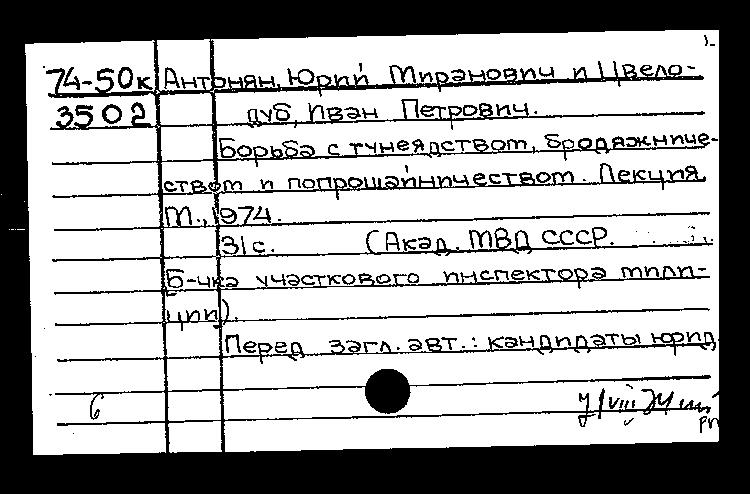 74-50к Антонян, Юрий Миранович и Цвело-
3502 дуб, Иван Петрович.
Борьба с тунеядством, бродяжниче-
ством и попрошайничеством. Лекция.
М., 1974.
31 с. (Акад. МВД СССР.
Б-чка участкового инспектора мили-
ции).
Перед загл. авт.: кандидаты юрид.
6